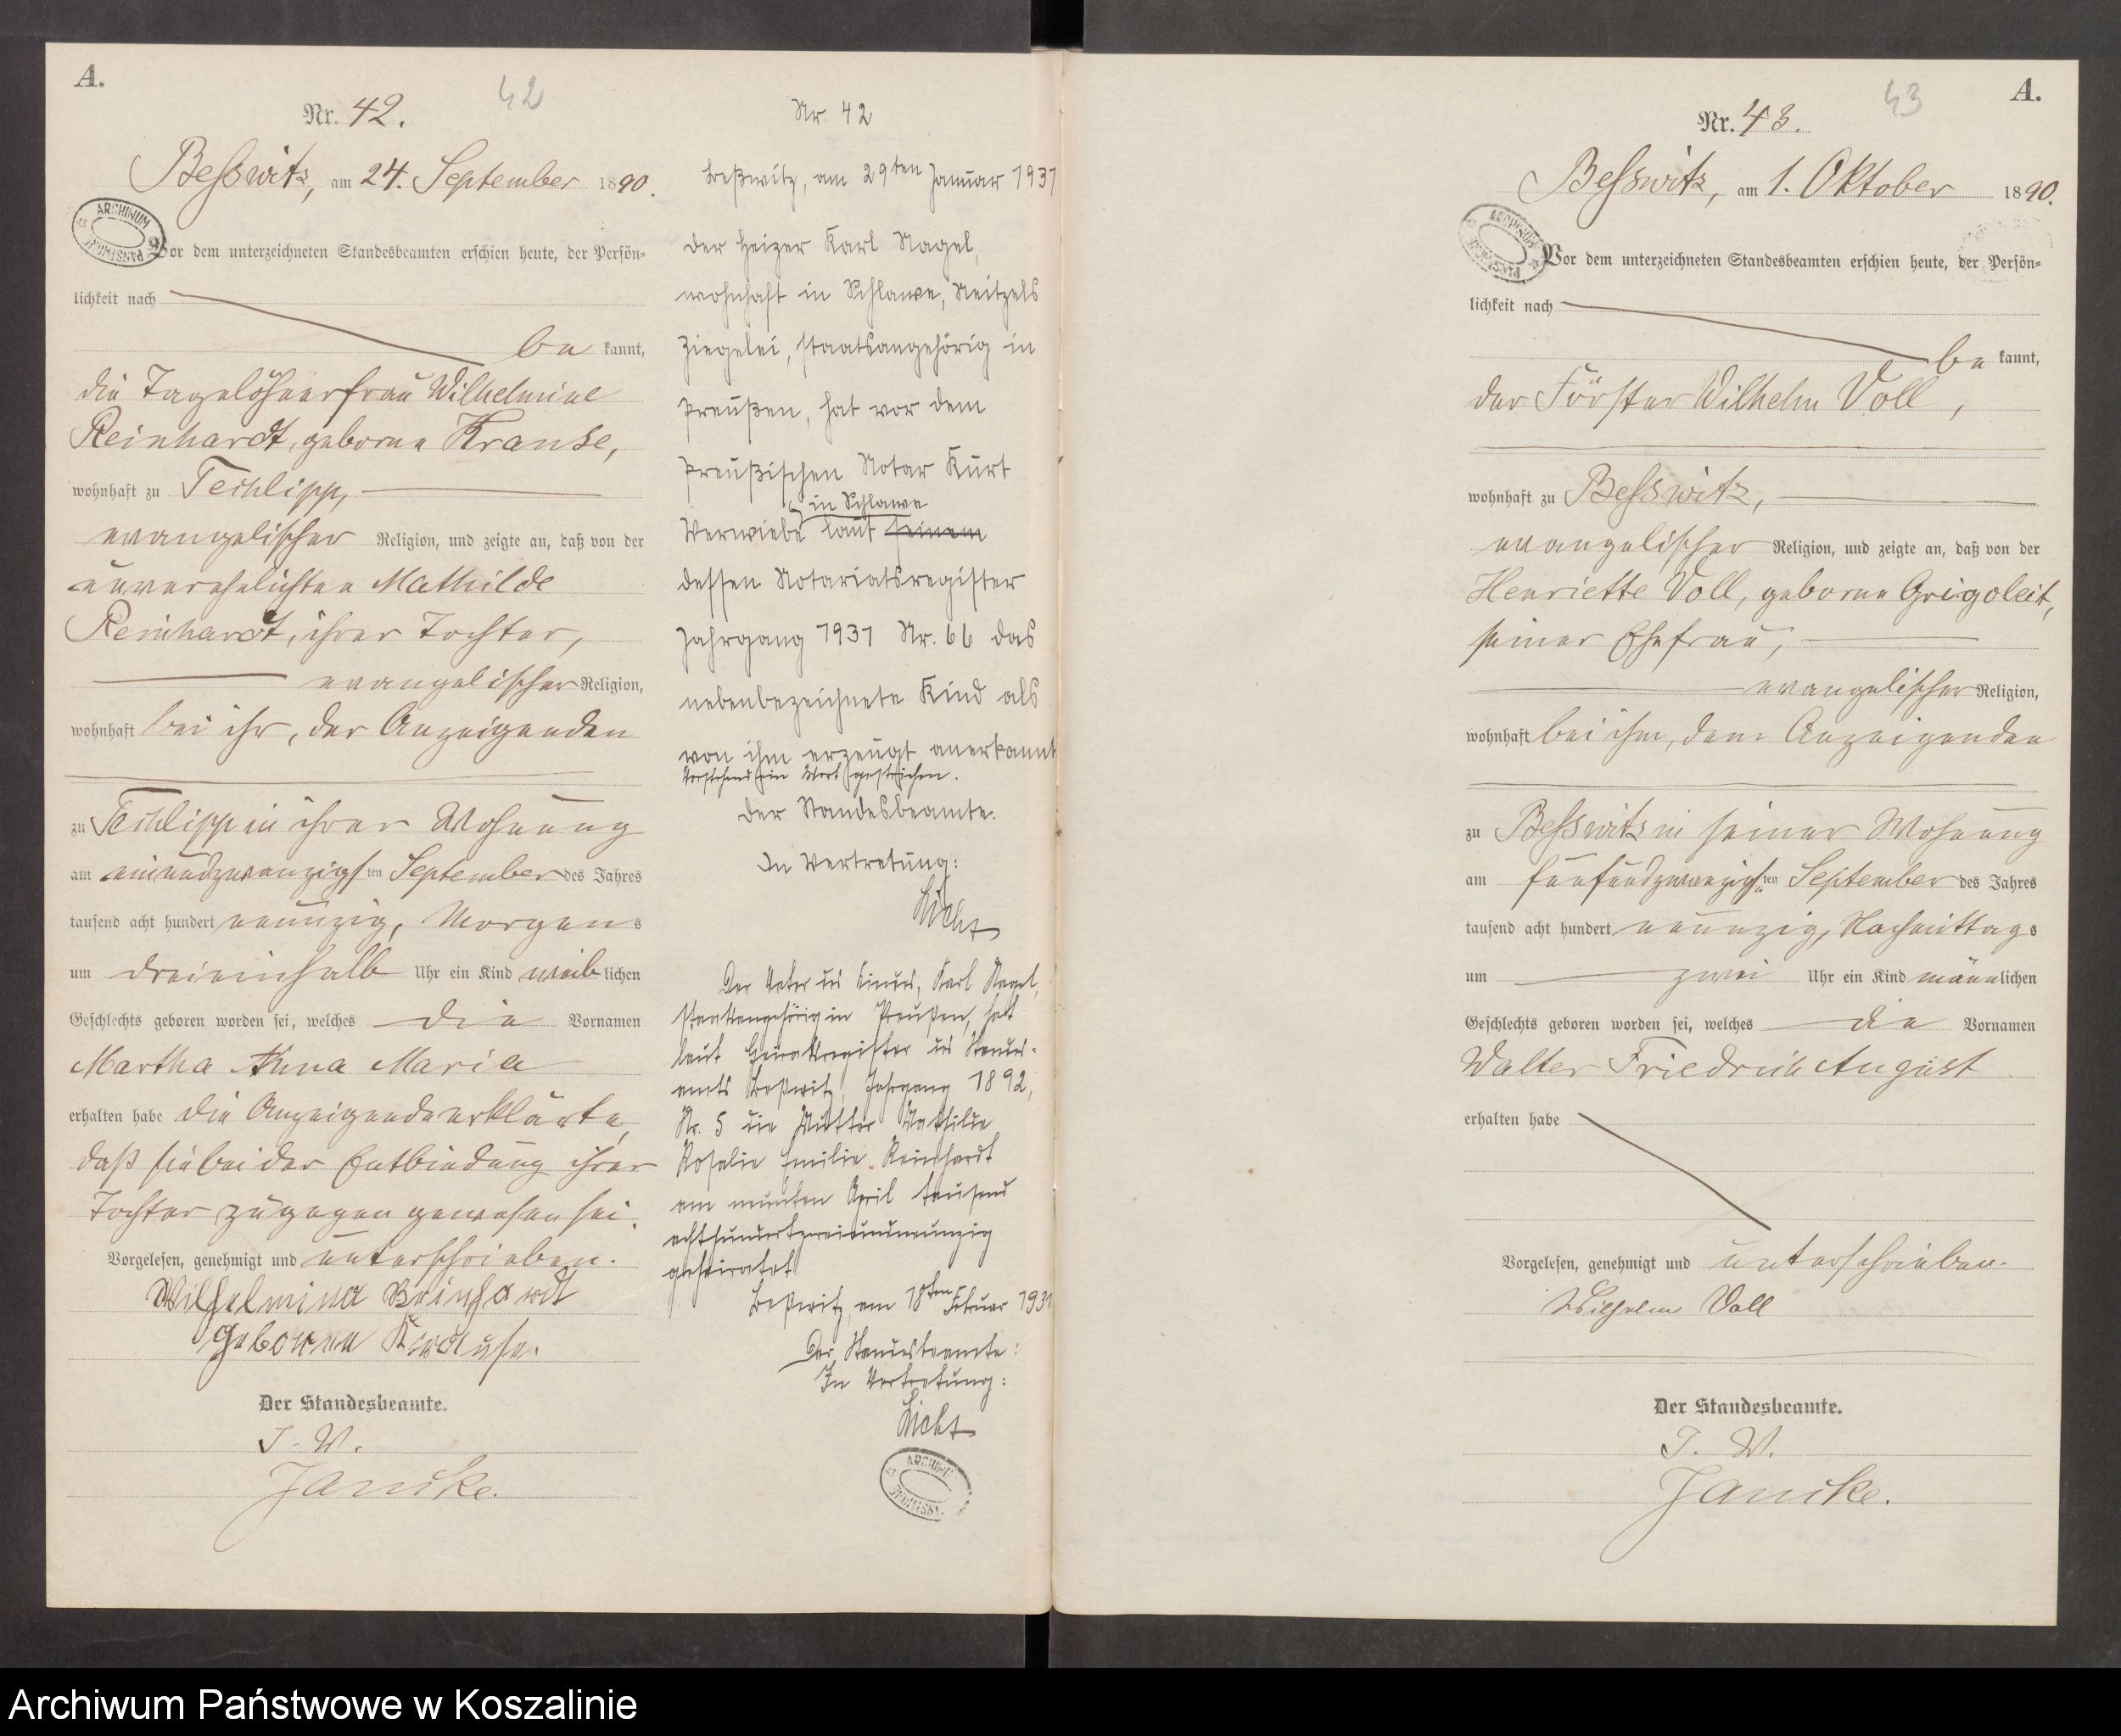 A.
42
Nr. 42.
Besswitz, am 24. September 1890.
ARCHIWUM PAŃSTWOWE
Vor dem unterzeichneten Standesbeamten erschien heute, der Persön-
lichkeit nach
be kannt,
die Tagelöhnerfrau Wilhelmine
Reinhardt, geborne Krause,
wohnhaft zu Techlipp,
evangelischer Religion, und zeigte an, daß von der
unverehelichten Mathilde
Reinhardt, ihrer Tochter,
evangelischer Religion,
wohnhaft bei ihr, der Anzeigenden
zu Techlipp in ihrer Wohnung
am einundzwanzigsten September des Jahres
tausend acht hundert neunzig, Morgens
um dreieinhalb Uhr ein Kind weiblichen
Geschlechts geboren worden sei, welches die Vornamen
Martha Anna Maria
erhalten habe die Anzeigende erklärte,
daß sie bei der Entbindung ihrer
Tochter zugegen gewesen sei.
Vorgelesen, genehmigt und unterschrieben.
Wilhelmina Reinhardt
geborne Krause.
Der Standesbeamte.
J. V.
Jancke.
Nr. 42
Beßwitz, am 29ten Januar 1931
Der Heizer Karl Nagel,
wohnhaft in Schlawe, Neitzels
Ziegelei, staatsangehörig in
Preußen, hat vor dem
Preußischen Notar Kurt
in Schlawe
Verwiebe laut seinem
dessen Notariatsregister
Jahrgang 1931 Nr. 66 das
nebenbezeichnete Kind als
von ihm erzeugt anerkannt
Vorstehend ein Wort gestrichen.
Der Standesbeamte.
In Vertretung:
Licht
Der Vater des Kindes, Karl Nagel,
staatsangehörig in Preußen, hat
laut Heiratsregister des Standes-
amts Beßwitz, Jahrgang 1892,
Nr. 5 die Mutter Mathilde
Rosalie Emilie Reinhardt
am neunten April tausend
achthundertzweiundneunzig
geheiratet
Beßwitz, am 18ten Februar 1931
Der Standesbeamte:
In Vertretung:
Licht
ARCHIWUM
A.
43
Nr. 43.
Besswitz, am 1. Oktober 1890.
Vor dem unterzeichneten Standesbeamten erschien heute, der Persön-
lichkeit nach
be kannt,
der Förster Wilhelm Voll,
wohnhaft zu Besswitz,
evangelischer Religion, und zeigte an, daß von der
Henriette Voll, geborne Grigoleit,
seiner Ehefrau,
evangelischer Religion,
wohnhaft bei ihm, dem Anzeigenden
zu Besswitz in seiner Wohnung
am fünfundzwanzigsten September des Jahres
tausend acht hundert neunzig, Nachmittags
um zwei Uhr ein Kind männlichen
Geschlechts geboren worden sei, welches die Vornamen
Walter Friedrich August
erhalten habe
Vorgelesen, genehmigt und unterschrieben.
Wilhelm Voll
Der Standesbeamte.
J. V.
Jancke.
Archiwum Państwowe w Koszalinie